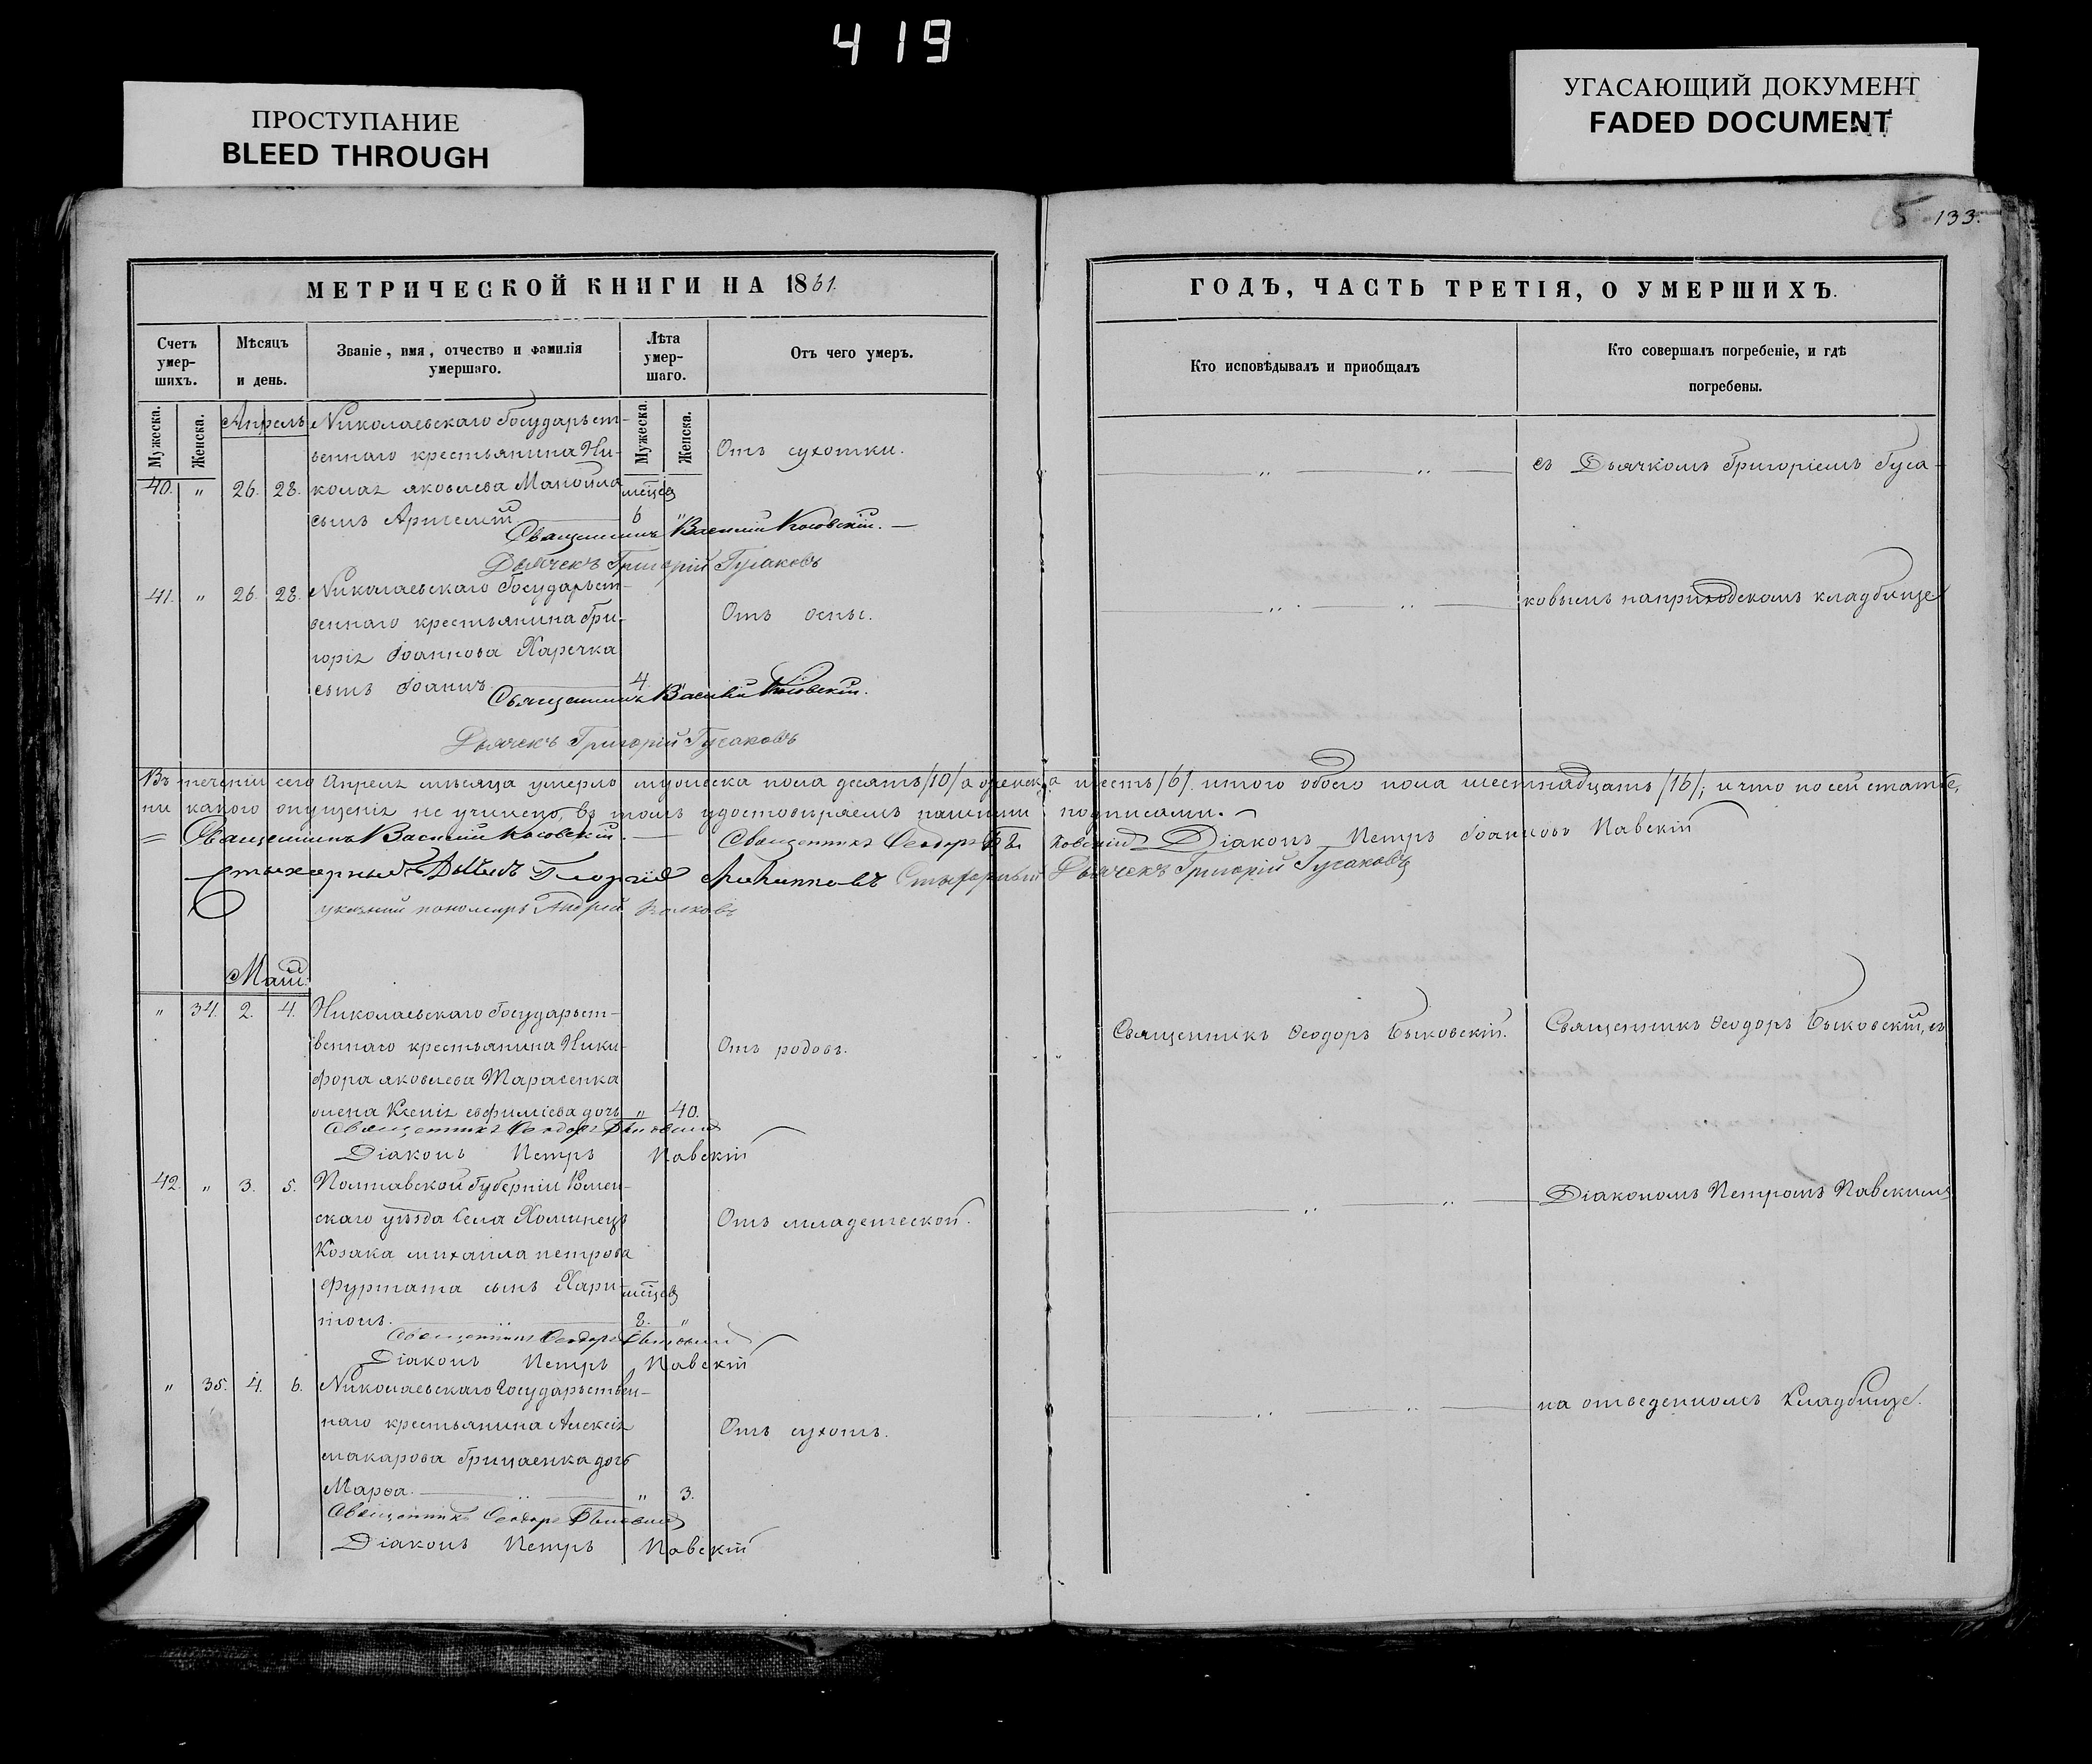 419
ПРОСТУПАНИЕ
BLEED THROUGH
УГАСАЮЩИЙ ДОКУМЕНТ
FADED DOCUMENT
133.
МЕТРИЧЕСКОЙ КНИГИ НА 1861.
Счетъ умер-шихъ.
Мѣсяцъ и день.
Званіе, имя, отчество и фамилія умершаго.
Лѣта умер-шаго.
Отъ чего умеръ.
Мужеска.
Женска.
Апрель
Мужеска.
Женска.
Николаевскаго Государст-
веннаго крестьянина Ни-
Отъ сухотки.
40. " 26. 28. колая яковлева Манойла мѣсцев
сынъ 6 "
Священникъ Василий Косовскій.
Дьячекъ Григорій Гусаковъ
41. " 26. 28. Николаевскаго Государст-
веннаго крестьянина Гри- Отъ оспы.
горія Іоаннова Харечка
сынъ Іоаннъ 4.
Священникъ Василій Косовскій.
Дьячекъ Григорій Гусаковъ
Въ теченіи сего Апреля мѣсяца умерло мужеска пола десять /10/ а женск
ни какого опущенія не учинено, въ томъ удостовѣряемъ нашими
Священникъ Василий Косовскій. Священникъ Ѳеодоръ Бы
Стихарный Георгій Стихарный
указний пономарь Андрей
Маій
" 34. 2. 4. Николаевскаго Государст-
веннаго крестьянина Ники- Отъ родовъ.
фора яковлева Тарасенка
жена Ксенія евфиміева дочь " 40.
Священникъ Ѳеодоръ Быковский
Діаконъ Петръ Павскій
42. " 3. 5. Полтавской Губерніи Ромен-
скаго уѣзда Села Хоминецъ Отъ младенческой.
Козака михаила петрова
Фуртата сынъ Хари- мѣсцев
тонъ. 8. "
Священникъ Ѳеодоръ Быковский
Діаконъ Петръ Павскій
" 35. 4. 6. Николаевскаго Государствен-
наго крестьянина Алексія
Отъ сухотъ.
макарова Грицаенка дочь
Марѳа. " 3.
Священникъ Ѳеодоръ Быковский
Діаконъ Петръ Павскій
ГОДЪ, ЧАСТЬ ТРЕТІЯ, О УМЕРШИХЪ.
Кто исповѣдывалъ и пріобщалъ
Кто совершалъ погребеніе, и гдѣ погребены.
" " съ Дьячкомъ Григоріемъ Гуса-
" " ковымъ на приходскомъ кладбище
а шесть /6/. итого обоего пола шестнадцать /16/; и что по сей статье,
подписами.
ковский Діаконъ Петръ Іоанновъ Павскій
Дьячекъ Григорій Гусаковъ
Священникъ Ѳеодоръ Быковскій. Священникъ Ѳеодоръ Быковскій, съ
" " Діакономъ Петромъ Павскимъ
" " на отведенномъ кладбище.